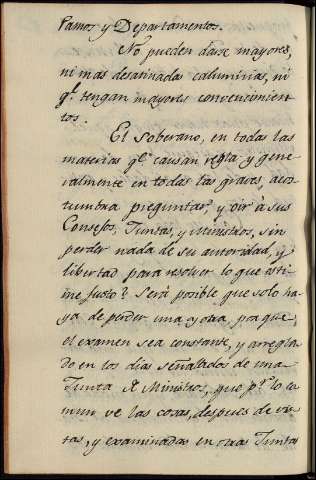 Ramos y Departamentos.
No pueden darse mayores,
ni mas desatinadas calumnias, ni
qᵉ tengan mayores convencimien-
tos.
El Soberano, en todas las
materias qᵉ causan regla y gene-
ralmente en todas las graves, acos-
tumbra preguntar, y oir à sus
Consejos, Juntas, y Ministros, sin
perder nada de su autoridad, y
libertad para resolver lo que esti-
me justo? Será posible que solo ha-
ya de perder una y otra, porque
el examen sea constante, y arregla-
do en los dias señalados de una
Junta de Ministros, que pʳ lo co-
mun ve las cosas, despues de vis-
tas, y examinadas en otras Juntas